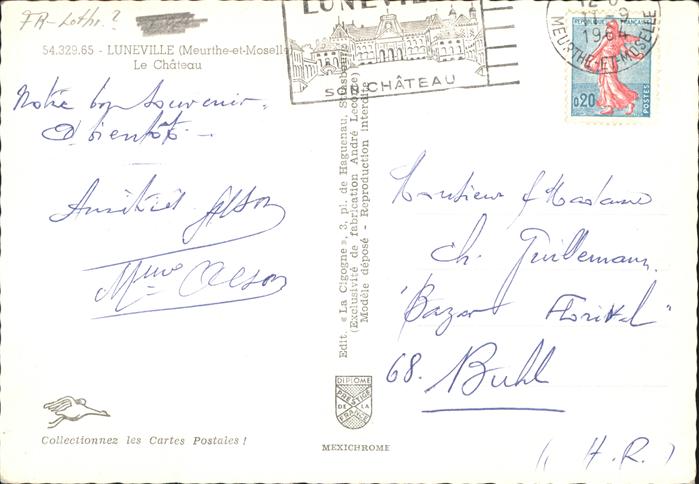 FR-Lothr?
54.329.65 - LUNEVILLE (Meurthe-et-Moselle)
Le Château
Notre bon souvenir.
A bientôt -
Mme
LUNEVILLE
SON CHÂTEAU
12-
9
1964
MEURTHE-ET-MOSELLE
REPUBLIQUE FRANÇAISE
0,20
POSTES
Edit. «La Cigogne», 3, pl. de Haguenau, Strasbourg
(Exclusivité de fabrication André Leconte)
Modèle déposé - Reproduction interdite
Monsieur & Madame
Ch. Guillemann.
"Bazar Florival"
68. Buhl
(H.R.)
DIPLOME
PRESTIGE
DE LA
FRANCE
MEXICHROME
Collectionnez les Cartes Postales !